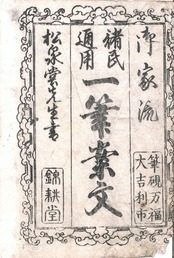 御家流
筆硯万福
大吉利市
諸民
通用
一筆業文
松泉堂先生書
錦耕堂